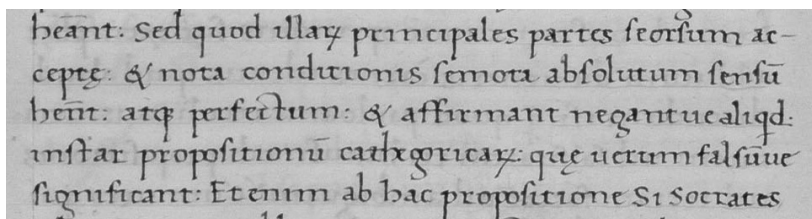 heant: Sed quod illaꝝ principales partes ſeorſum ac-
ceptę: & nota conditionis ſemota abſolutum ſenſū
hēnt: atqꝫ perfectum: & affirmant negantue aliqd:
inſtar propoſitionū cathegoricaꝝ: quę uerum falſūue
ſignificant: Etenim ab hac propoſitione Si Socrates